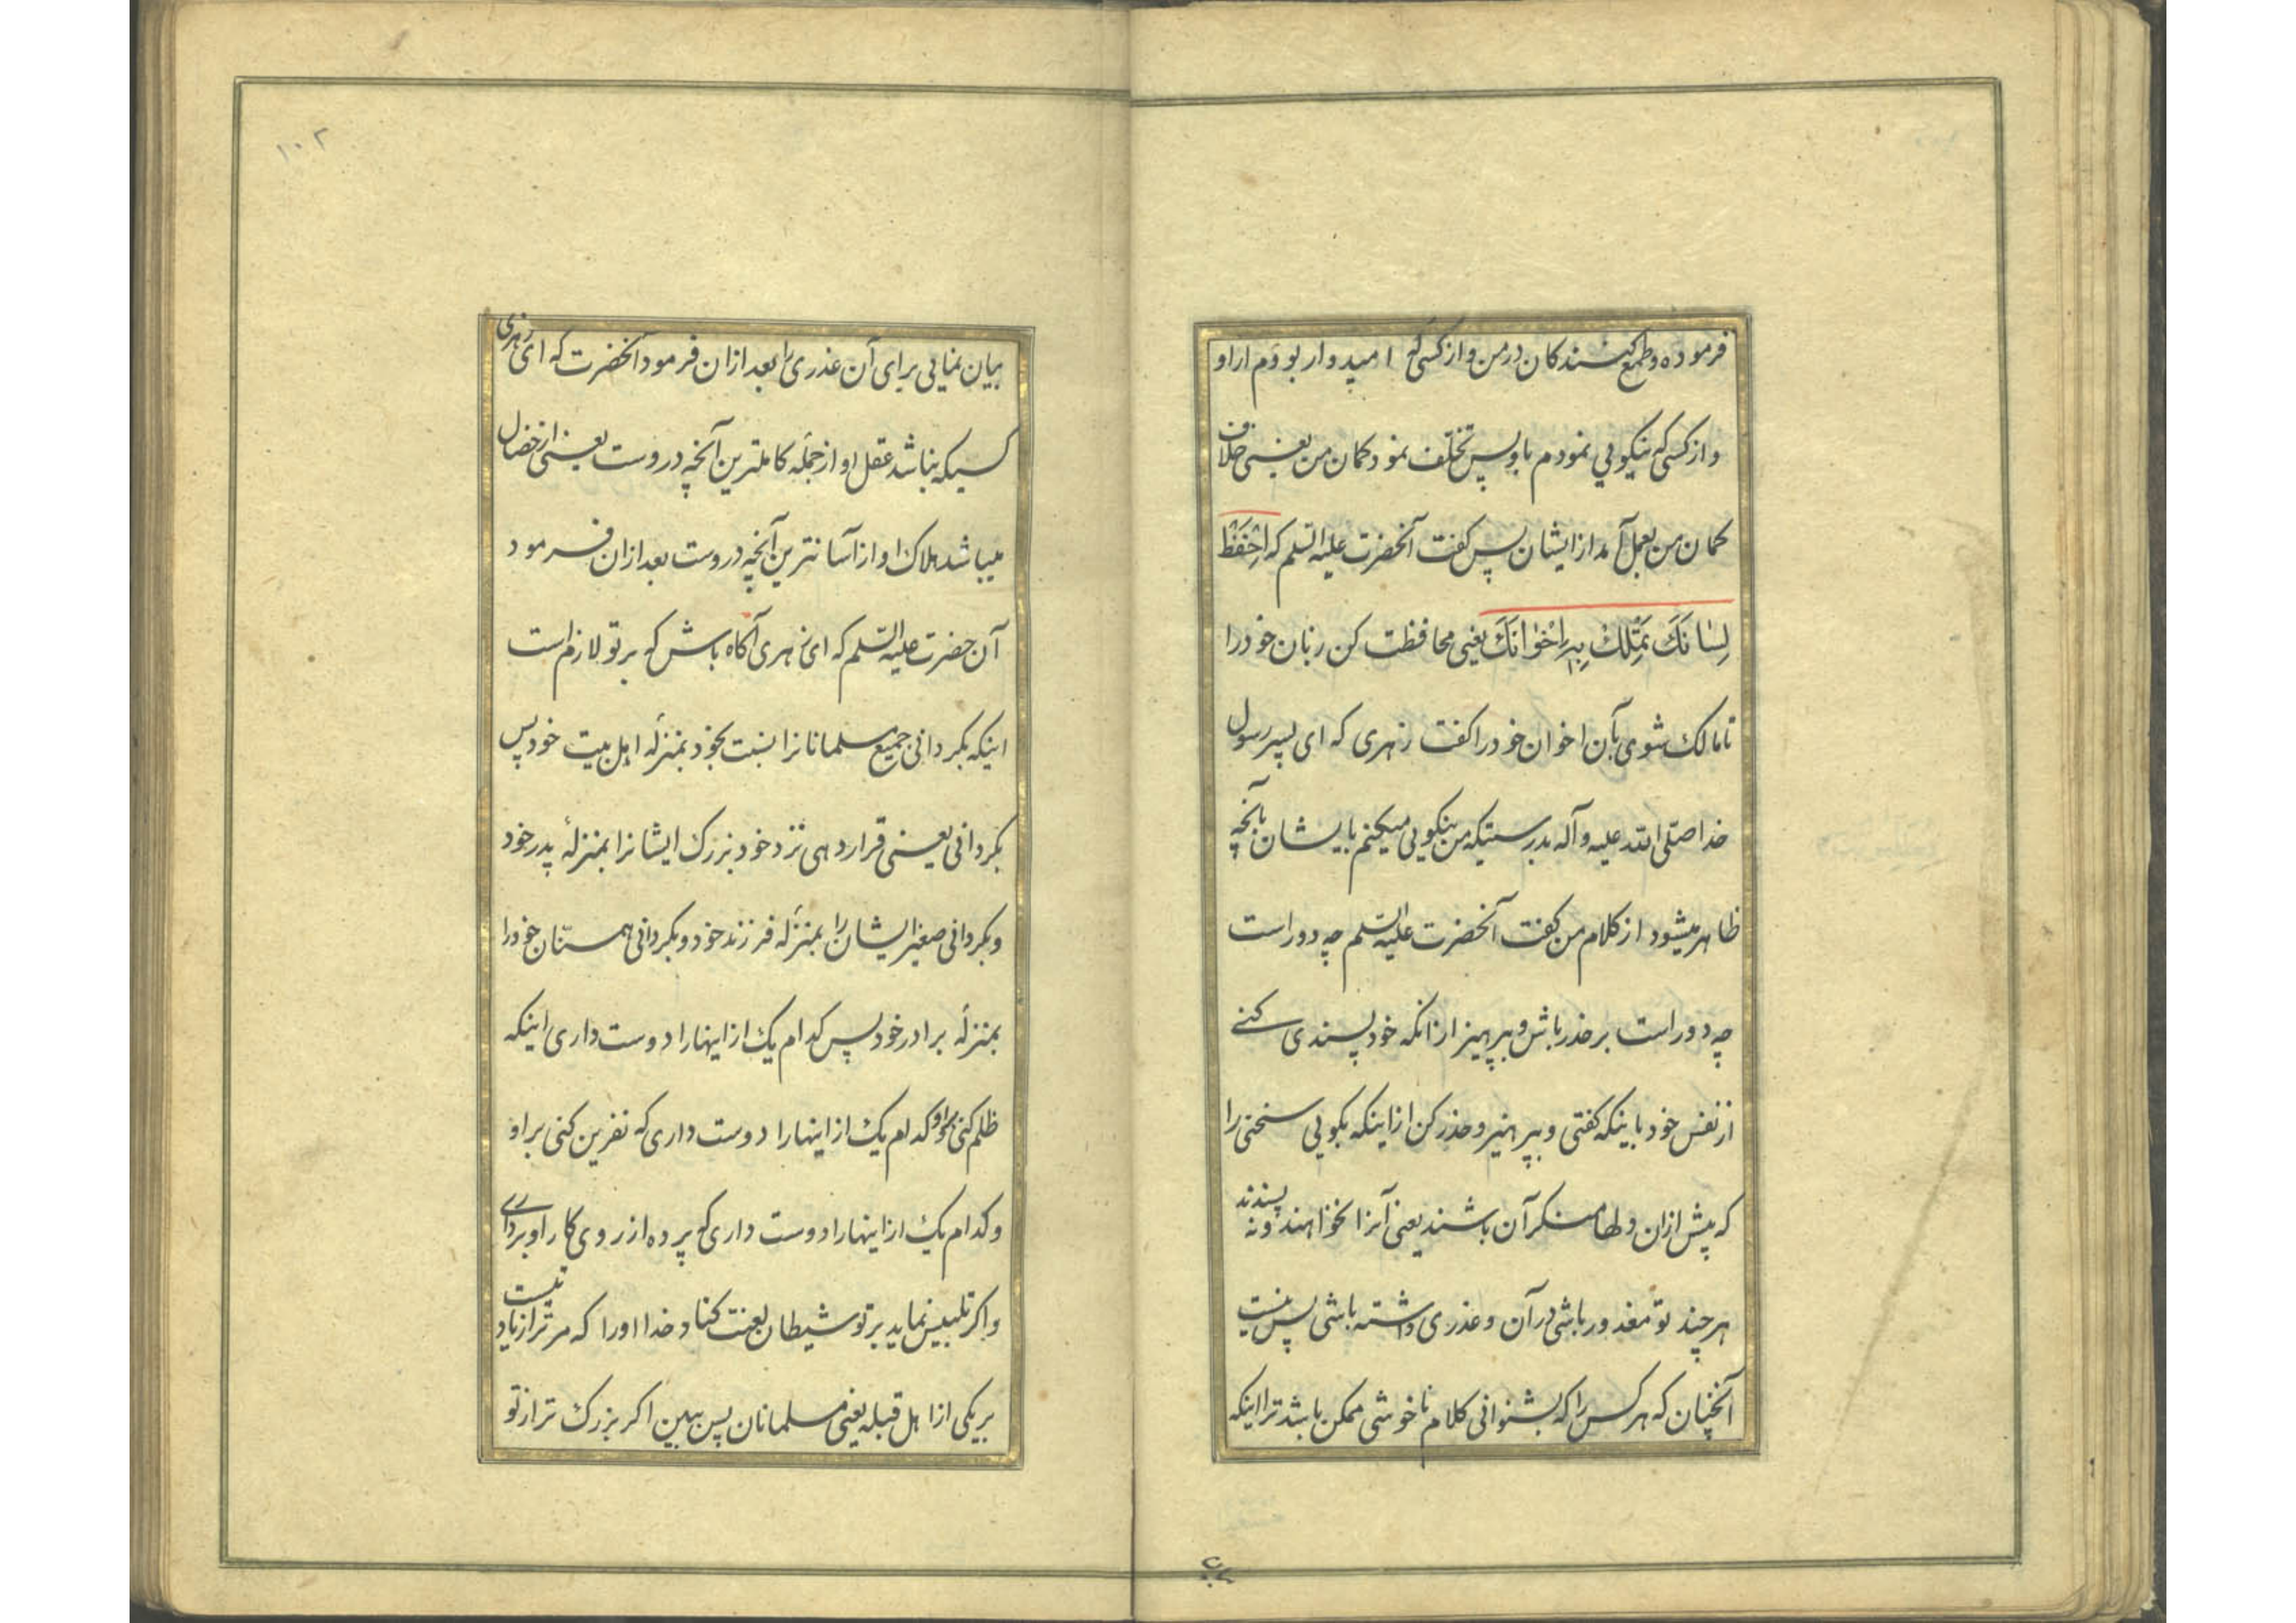 فرموده و طمع کنندکان در من و از کسی که امیدوار بودم از او
و از کسی که نیکویی نمودم باو پس تخلف نمود کمان من یعنی خلاف
کمان من بعمل آمد از ایشان پس کفت آنحضرت علیه السلم که اِحْفَظْ
لِسٰانَکَ تَمْلِکْ بِهِ اِخْوٰانَکَ یعنی محافظت کن زبان خود را
تا مالک شوی بآن اخوان خود را کفت زهری که ای پسر رسول
خدا صلی الله علیه و آله بدرستیکه من نیکویی میکنم بایشان بآنچه
ظاهر میشود از کلام من کفت آنحضرت علیه السلم چه دور است
چه دور است بر حذر باش و بپرهیز از آنکه خود پسندی کنی
از نفس خود باینکه کفتی و بپرهیز و حذر کن از اینکه بکویی سخنی را
که پیش از ان دلها منکر آن باشند یعنی آنرا نخواهند و نه پسندند
هر چند تو معذور باشی در آن و عذری داشته باشی پس نیست
آنچنان که هر کس را که بشنوانی کلام ناخوشی ممکن باشد ترا اینکه
۱۰۲
بیان نمایی برای آن عذری را بعد از ان فرمود آنحضرت که ای زهری
کسیکه نباشد عقل او از جمله کاملترین آنچه در وست یعنی از خصال
میباشد هلاک او از آسانترین آنچه در وست بعد از ان فرمود
آن حضرت علیه السلم که ای زهری آکاه باش که بر تو لازم است
اینکه بکردانی جمیع مسلمانانرا نسبت بخود بمنزلهٔ اهل بیت خود پس
بکردانی یعنی قرار دهی نزد خود بزرک ایشانرا بمنزلهٔ پدر خود
و بکردانی صغیر ایشان را بمنزلهٔ فرزند خود و بکردانی همسنّان خود را
بمنزلهٔ برادر خود پس کدام یک از اینها را دوست داری اینکه
ظلم کنی باو و کدام یک از اینها را دوست داری که نفرین کنی بر او
و کدام یک از اینها را دوست داری که پرده از روی کار او برداری
و اکر تلبیس نماید بر تو شیطان لعنت کناد خدا او را که مر ترا زیادتیست
بر یکی از اهل قبله یعنی مسلمانان پس ببین اکر بزرک تر از تو